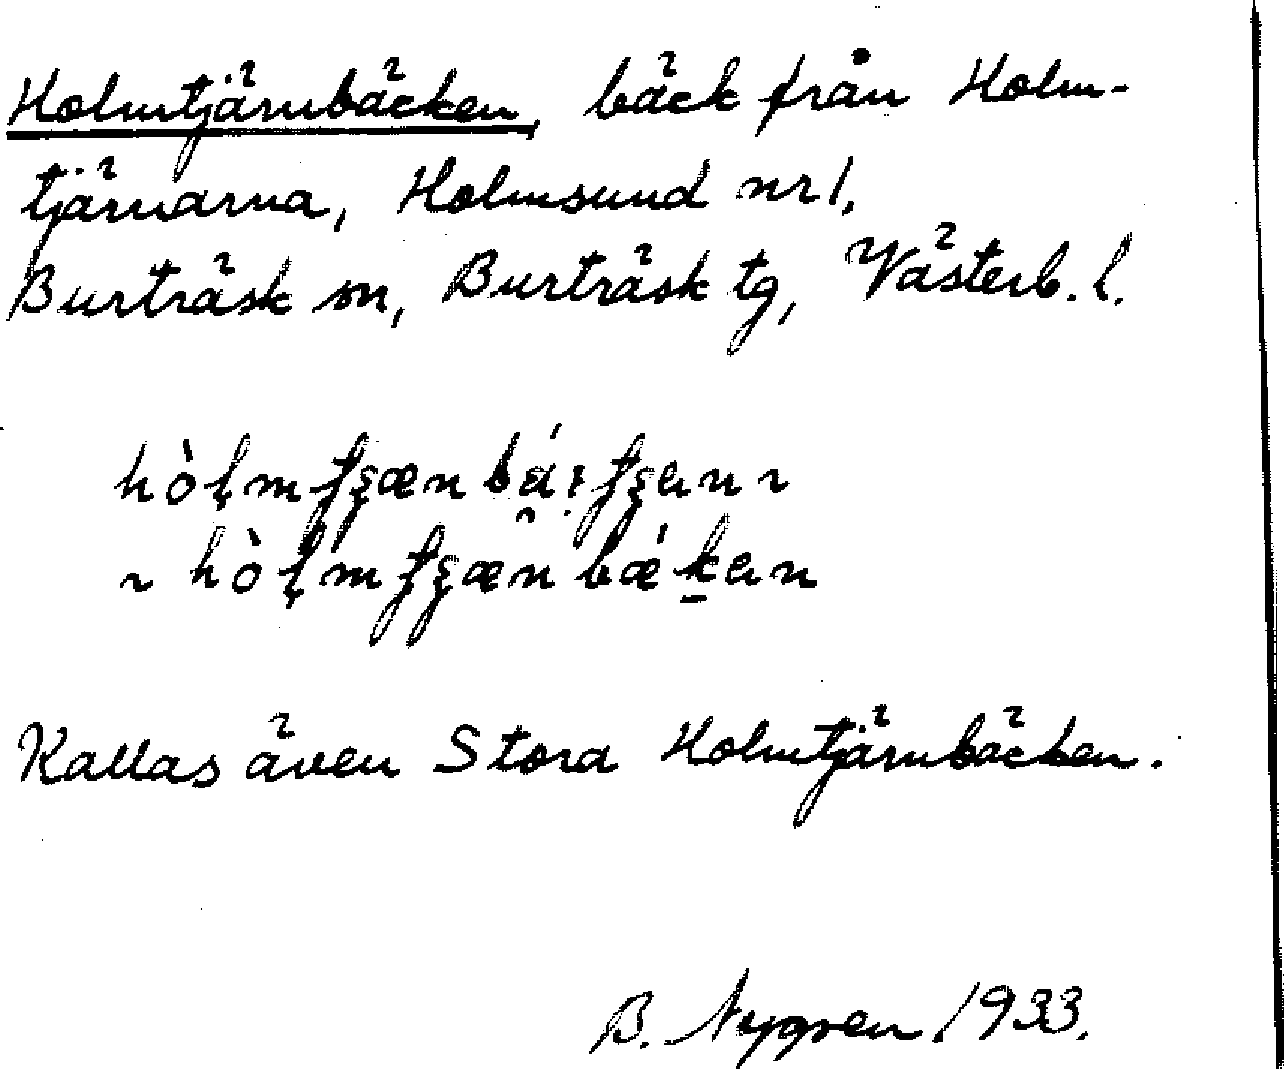 Holmtjärnbäcken, bäck från Holm-
tjärnarna, Holmsund nr 1,
Burträsk sn, Burträsk tg, Västerb. l.
Kallas även Stora Holmtjärnbäcken.
B. Nygren 1933.